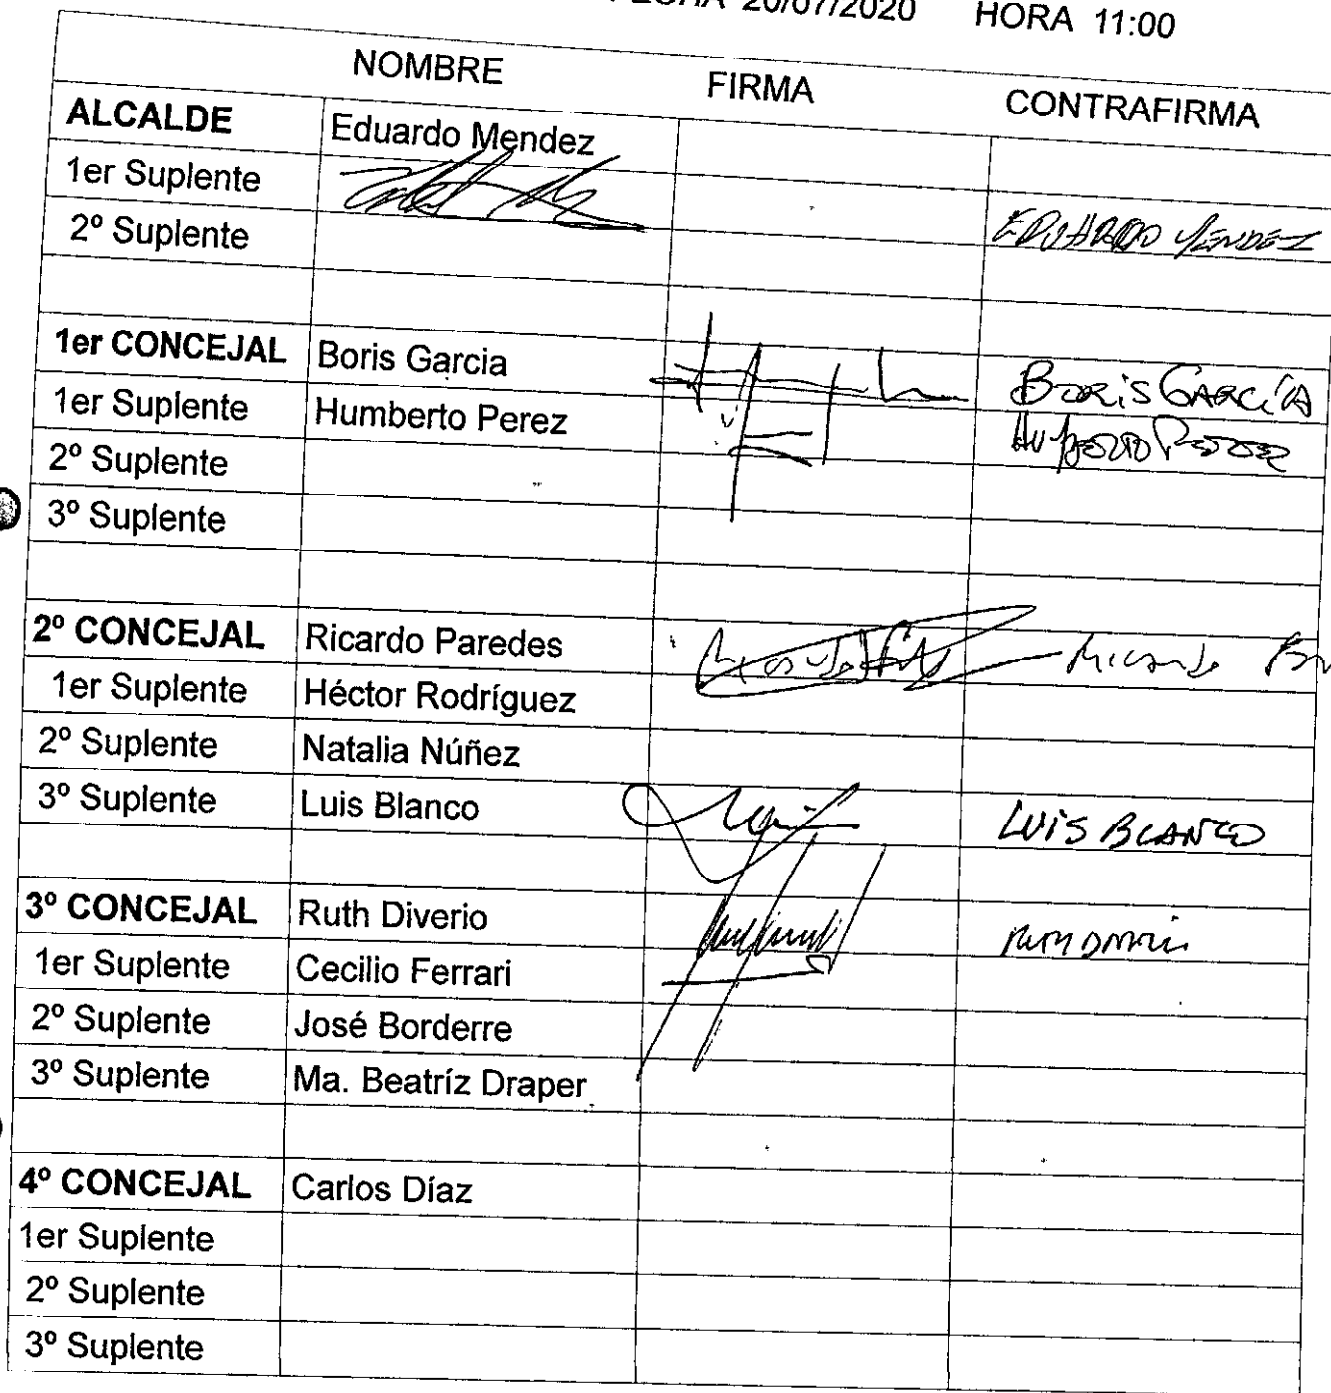 FECHA 20/07/2020 HORA 11:00
NOMBRE FIRMA CONTRAFIRMA
ALCALDE Eduardo Mendez
1er Suplente
2º Suplente EDUARDO MENDEZ
1er CONCEJAL Boris Garcia BORIS GARCÍA
1er Suplente Humberto Perez Humberto Perez
2º Suplente
3º Suplente
2º CONCEJAL Ricardo Paredes Ricardo
1er Suplente Héctor Rodríguez
2º Suplente Natalia Núñez
3º Suplente Luis Blanco LUIS BLANCO
3º CONCEJAL Ruth Diverio
1er Suplente Cecilio Ferrari
2º Suplente José Borderre
3º Suplente Ma. Beatríz Draper
4º CONCEJAL Carlos Díaz
1er Suplente
2º Suplente
3º Suplente